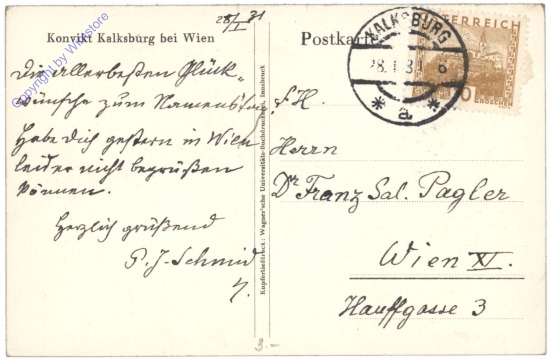 28/I 31
Konvikt Kalksburg bei Wien
Die allerbesten Glück-
wünsche zum Namenstag.
Habe dich gestern in Wien
leider nicht begrüßen
können.
Herzlich grüßend
P. J. Schmid
Kupfertiefdruck: Wagner'sche Universitäts-Buchdruckerei, Innsbruck
Postkarte
KALKSBURG
28. I. 31
* a *
ÖSTERREICH
10 GROSCHEN
S. H.
Herrn
Dr Franz Sal. Pagler
Wien XI.
Hauffgasse 3
3.-
Copyright by Wikstore